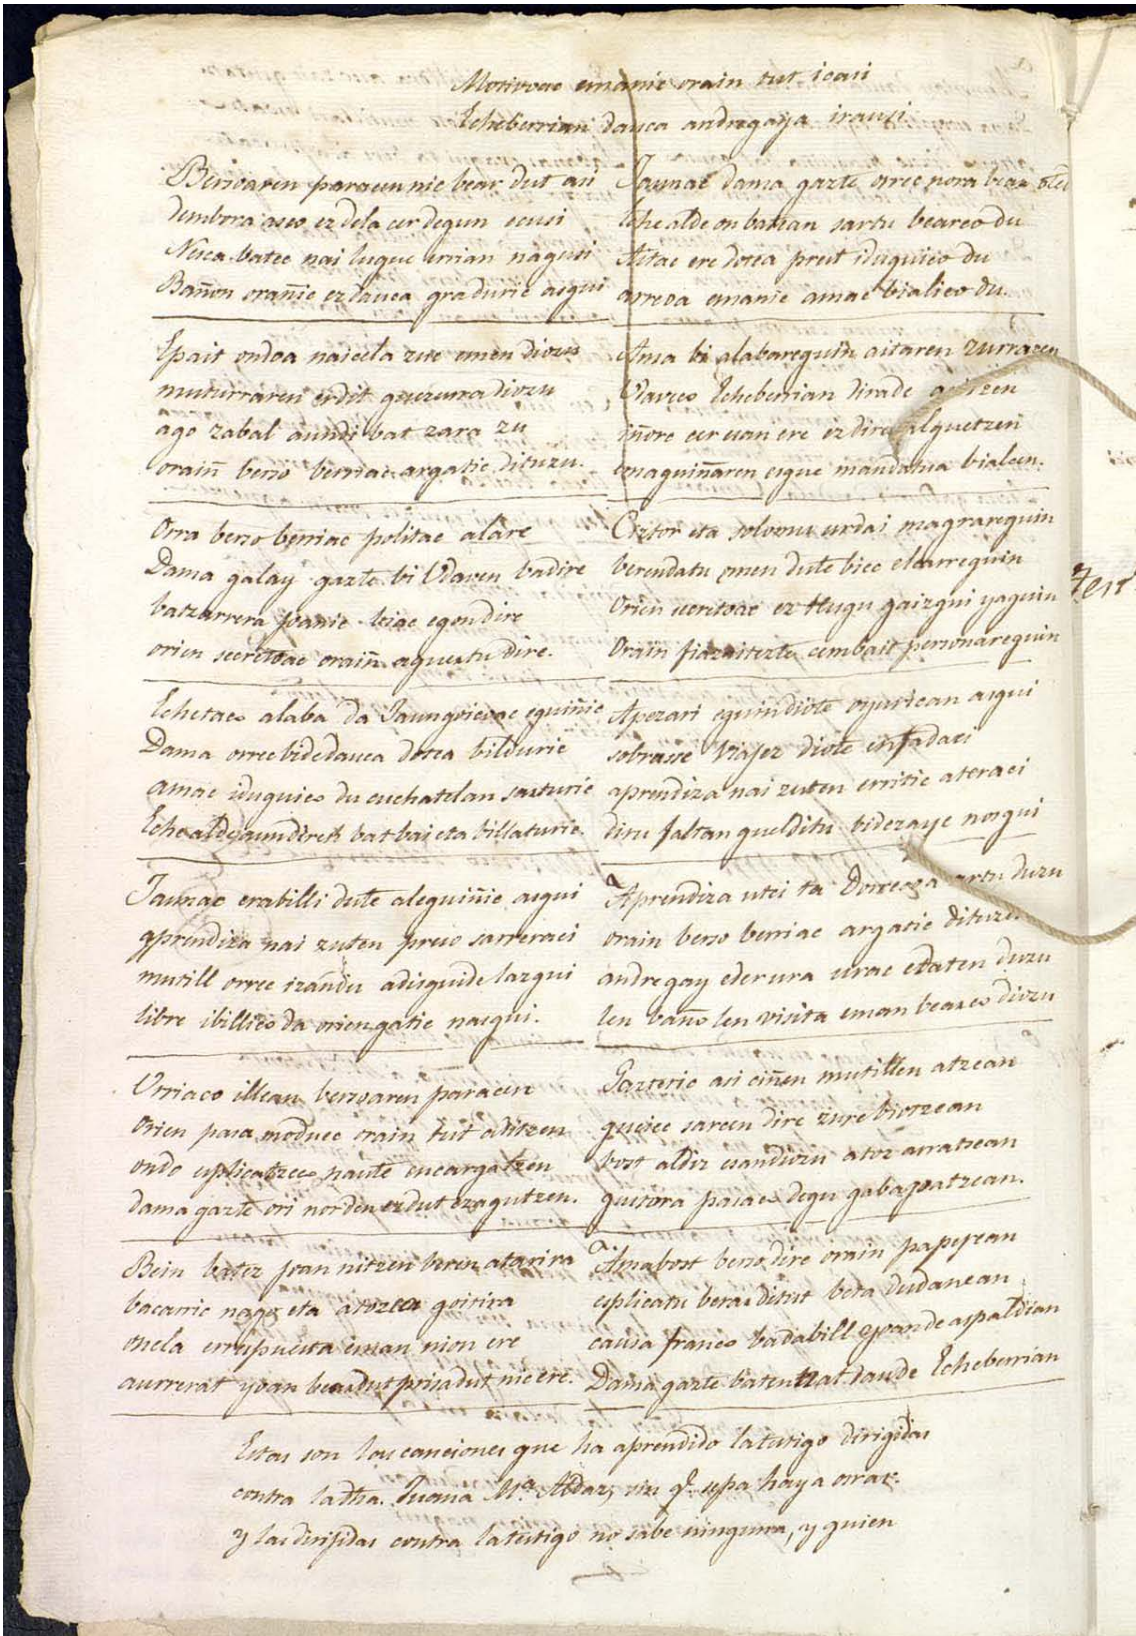 Motivoac emanic orain tut icasi
Echeberrian dauca andregaya irauzi
Bersoaren paracen nic bear dut asi
dembora asco ez dela cer degun icusi
Nesca batec nai luque errian nagusi
Bañon orañic ez dauca graduric asqui
Epait ondoa naicela zuc emen diozu
muturraren erdit guezurra diozu
ago zabal aundi bat zara zu
oraiñ berso berriac argatic dituzu.
Orra berso berriac politac alare
Dama galay gazte bi Udaven badire
batzarrera joanic biac egondire
orien secretoac oraiñ aguertu dire.
Echetaco alaba da Jaungoicoac eguiñic
Dama orrec bidedauca dotea bilduric
amac iduquico du cuchatelan sarturic
Echealde jaunderen bat bai eta billaturic.
Jaunac erabilli dute aleguiñic asqui
aprendiza nai zuten precio sarreraci
mutill orrec izandu adisquide lazqui
libre ibillico da oriengatic nasqui.
Urriaco illean bersoaren paracen
orien pasa moduec orain tut aditzen
ondo esplicatzeco naute encargatzen
dama gazte ori nor den ez dut ezagutzen.
Bein batez joan nitzen beren atarira
bacarric nago eta atozea goitira
onela errespuesta eman nion ere
aurrerat yoan beardut prisa dut nic ere.
Jaunac dama gazte orrec nora bear oted
Eche alde on batean sartu bearco du
Aitac ere dotea prest iduquico du
arreoa emanic amac bialico du.
Ama bi alabarequin aitaren zurracen
Udavco Echeberrian dirade
iñorc cer esan ere ez dire alquetzen
emaguiñaren eigue mandatua bialcen.
Eiztor eta solomo urdai magrarequin
berendatu omen dute biec elcarrequin
Orien secretoac ez ttugu gaizqui yaquin
Orain fiazaitezte cembait personarequin
Apezari eguindiote oyurican asqui
sobrasse viajez diote enfadaci
aprendiza nai zuten erritic ateraci
ditu faltan guelditu bidezaye nosqui
Aprendiza utci ta Dorreoza artu duzu
orain berso berriac argatic dituzu
andregay eder ura urac edaten duzu
len baño len visita eman bearco diozu
Gazteric asi ciñen mutillen atzean
guciec sarcen dire zure biotzean
bost aldiz esandiozu atoz arratsean
gustora pasaco degu gaba patzean.
Amabost berso dire orain papeyean
esplicatu beras ditut beta dudanean
causa franco badabill yoande aspaldian
Dama gazte batentzat daude Echeberrian
Estas son las canciones que ha aprendido la testigo dirigidas
contra la dha. Juana Ma. Aldaz, sin qe. sepa haya otras.
y las dirijidas contra la testigo no sabe ninguna, y quien